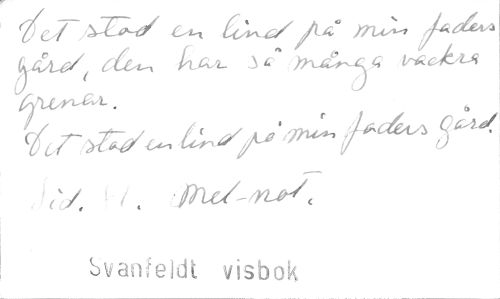 Det stod en lind på min faders
gård, den har så många vackra
grenar.
Det stod en lind på min faders gård.
Sid. Mel-not.
Svanfeldt visbok